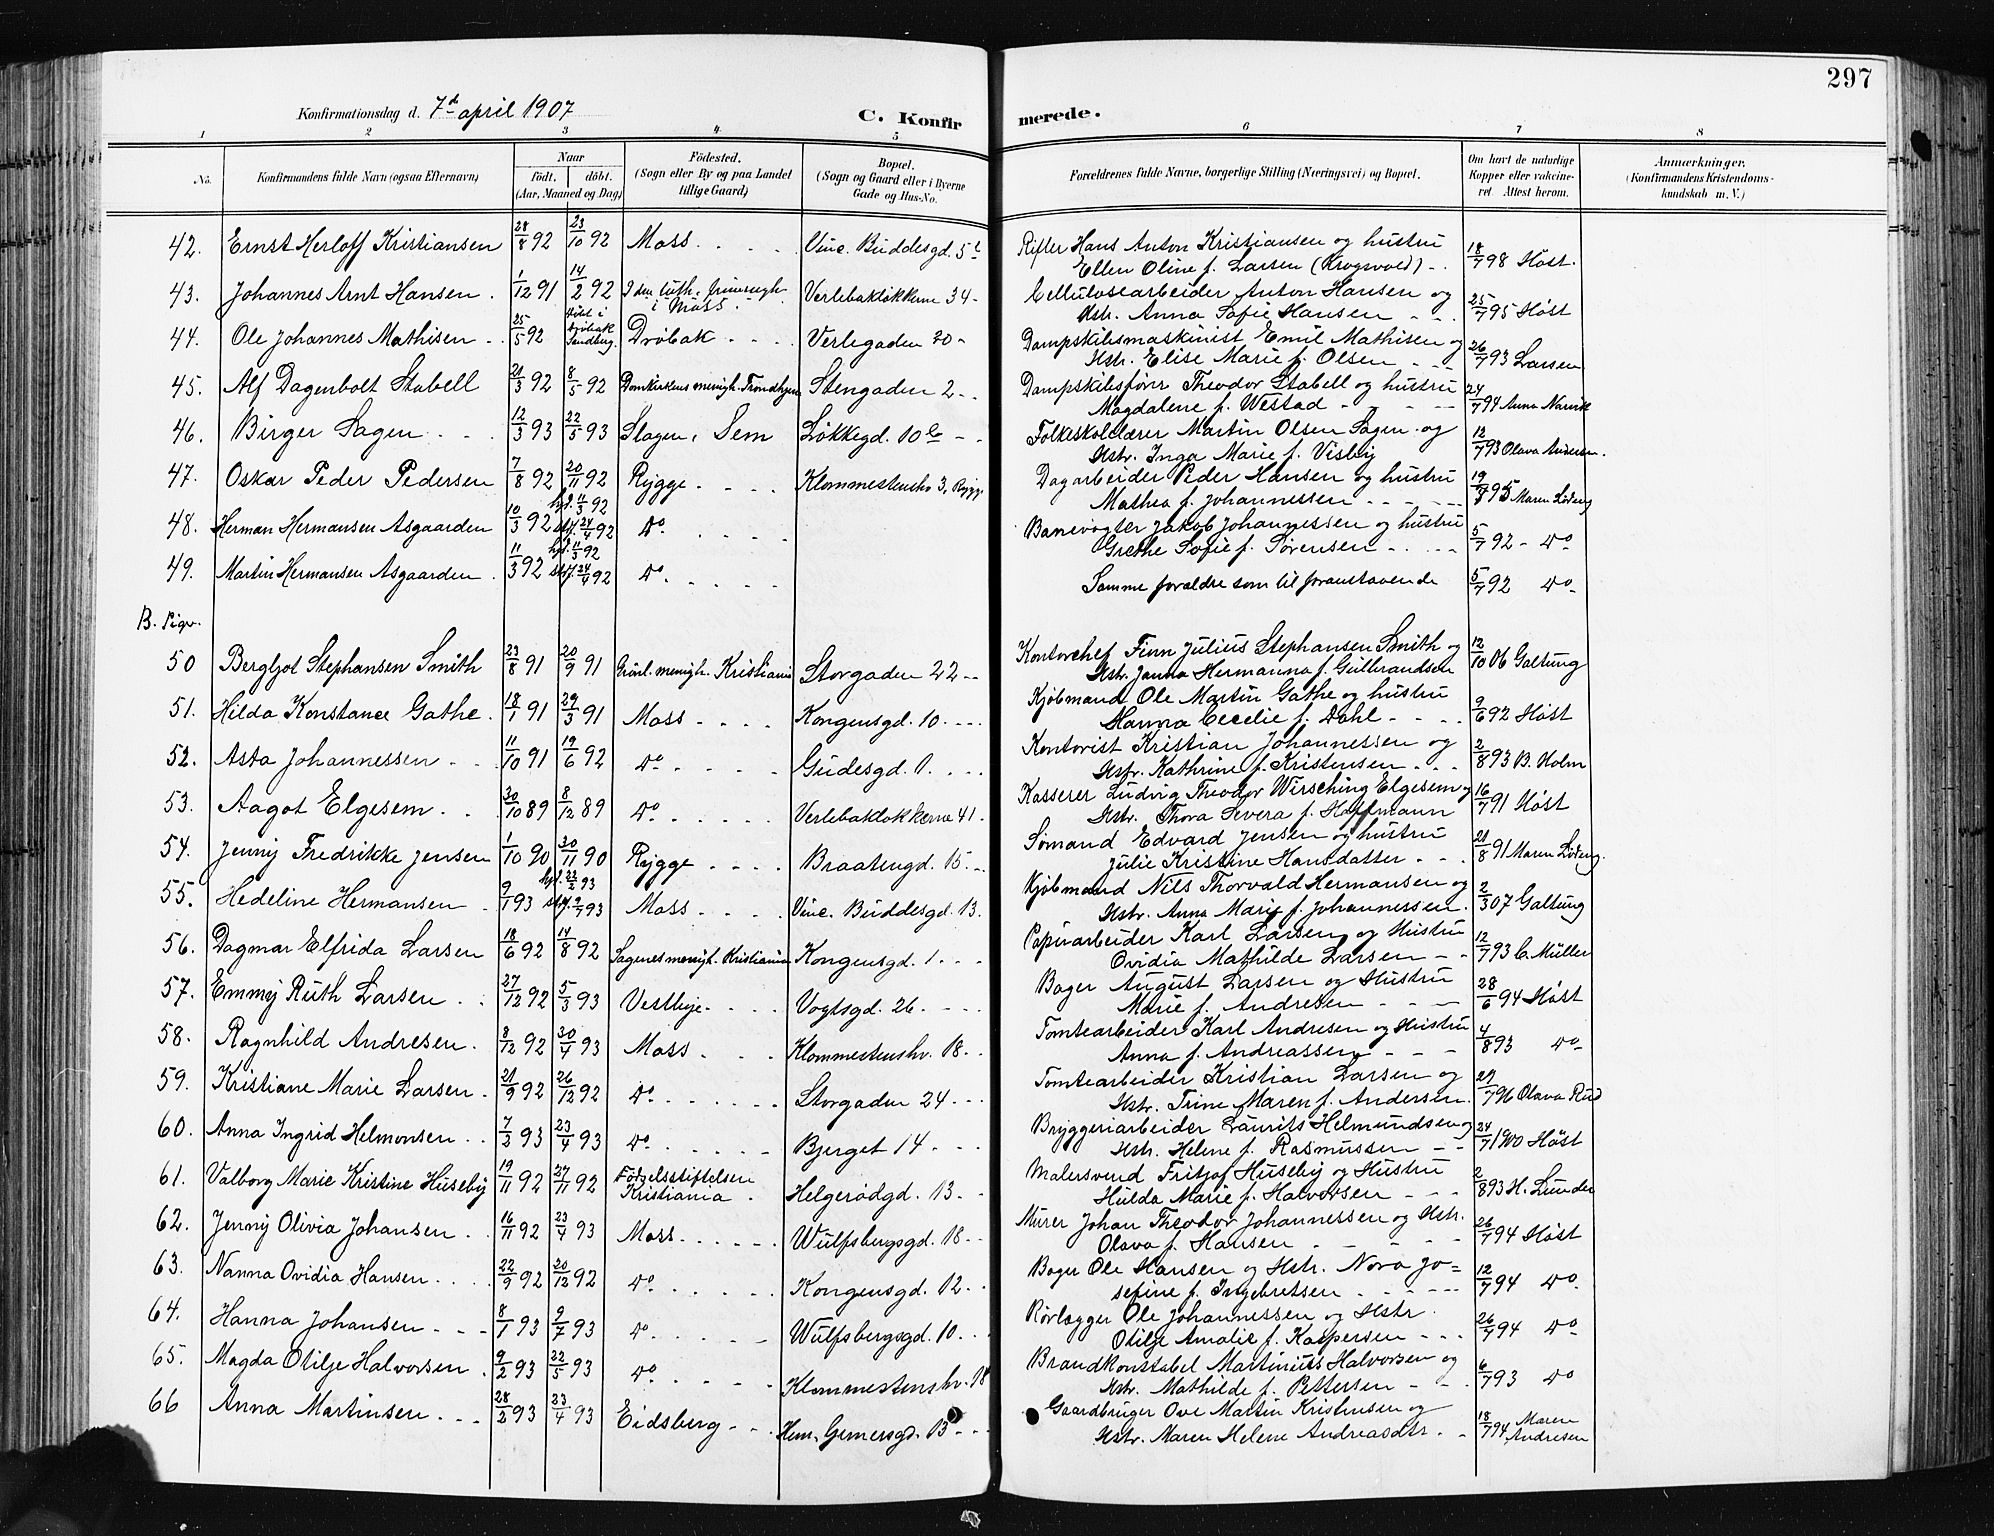 297
Konfirmationsdag d. 7d april 1907
C. Konfirmerede.
1 2 3 4 5 6 7 8
No.
Konfirmandens fulde Navn (ogsaa Efternavn)
Naar
født. døbt.
(Aar, Maaned og Dag)
Födested.
(Sogn eller By og paa Landet
tillige Gaard)
Bopæl.
(Sogn og Gaard eller i Byerne
Gade og Hus-No.
Forældrenes fulde Navne, borgerlige Stilling (Næringsvei) og Bopæl.
Om havt de naturlige
Kopper eller vakcine-
ret. Attest herom.
Anmærkninger.
(Konfirmandens Kristendoms-
kundskab m. V.)
42. Ernst Herloff Kristiansen 28/8 92 23/10 92 Moss Vinc. Buddesgd. 5 Rifler Hans Anton Kristiansen og hustru 18/7 98 Høst.
Ellen Oline f. Larsen (Krogsvold)
43. Johannes Arnt Hansen 1/12 91 14/2 92 I den luth. frimenigh. Verlebakløkkerne 34 Cellulosearbeider Anton Hansen og 25/7 95 Høst
i Moss. Hstr. Anna Sofie Hansen
44. Ole Johannes Mathisen 25/5 92 døbt i Drøbak Verlegaden 20 Dampskibsmaskinist Emil Mathisen og 26/7 93 Larsen
Hstr. Elise Marie f. Olsen
45. Alf Dagenbolt Stabell 21/3 92 8/5 92 Domkirkens menigh. Trondhjem Stengaden 2 Dampskibsfører Theodor Stabell og hustru 24/7 94 Anna Narvik
Magdalene f. Westad
46. Birger Sagen 12/3 93 22/5 93 Slagen, Sem Løkkegd. 10 Folkeskolelærer Martin Olsen Sagen og 12/7 93 Olava Andersen.
Hstr. Inga Marie f. Visby
47. Oskar Peder Pedersen 7/8 92 20/11 92 Rygge Klommestenshv 3, Rygge Dagarbeider Peder Hansen og hustru 19/8 95 Maren Løding
Mathea f. Johannessen
48. Herman Hermansen Asgaarden 10/3 92 hjd. 11/3 92 stf. 24/4 92 Do Banevogter Jakob Johannessen og hustru 5/7 92 Do
Grethe Sofie f. Sørensen
49. Martin Hermansen Asgaarden 11/3 92 hjd. 11/3 92 stf. 24/4 92 Do Samme forældre som til foranstaaende 5/7 92 Do
B. Piger.
50 Bergljot Stephansen Smith 23/8 91 20/9 91 Grønl. menigh. Kristiania Storgaden 22 Kontorchef Finn Julius Stephansen Smith og 12/10 06 Galtung
Hstr. Janna Hermanna f. Gulbrandsen
51. Hilda Konstance Gathe 18/1 91 29/3 91 Moss Kongensgd. 10 Kjøbmand Ole Martin Gathe og hustru 9/6 92 Høst
Hanna Cecelie f. Dahl
52. Asta Johannessen 11/10 91 19/6 92 Do Gudesgd. 1 Kontorist Kristian Johannessen og 2/8 93 B. Holm
Hstr. Kathrine f. Kristensen
53. Aagot Elgesem 30/10 89 8/12 89 Do Verlebakløkkerne 41 Kasserer Ludvig Theodor Wirsching Elgesem og 16/7 91 Høst
Hstr. Thora Severa f. Hoffmann
54. Jenny Fredrikke Jensen 1/10 90 30/11 90 Rygge Braatengd. 15 Sømand Edvard Jensen og hustru 21/8 91 Maren Løding.
Julie Kristine Hansdatter
55. Hedeline Hermansen 9/1 93 hjd. 22/2 93 stf. 2/7 93 Moss Vinc. Buddesgd. 13. Kjøbmand Nils Thorvald Hermansen og 2/3 07 Galtung
Hstr. Anna Marie f. Johannessen
56. Dagmar Elfrida Larsen 18/6 92 14/8 92 Sagenes menigh. Kristiania Kongensgd. 1 Papirarbeider Karl Larsen og Hustru 12/7 93 C. Müller
Ovidia Mathilde Larsen
57. Emmy Ruth Larsen 27/12 92 5/3 93 Vestby Vogtsgd. 26 Bager August Larsen og Hustru 28/6 94 Høst
Marie f. Andresen
58. Ragnhild Andresen 8/12 92 30/4 93 Moss Klommestenshv. 18 Tomtearbeider Karl Andresen og Hustru 4/8 93 Do
Anna f. Andreassen
59. Kristiane Marie Larsen 21/9 92 26/12 92 Do Storgaden 24 Tomtearbeider Kristian Larsen og 29/7 96 Olava Rud
Hstr. Trine Maren f. Andersen
60. Anna Ingrid Helmonsen 7/2 93 23/4 93 Do Bjerget 14 Bryggeriarbeider Laurits Helmundsen og 24/7 1900 Høst
Hstr. Helene f. Rasmussen
61. Valborg Marie Kristine Huseby 19/11 92 27/11 92 Fødselsstiftelsen Kristiania Helgerødgd. 13 Malersvend Fritjof Huseby og Hustru 2/8 93 H. Lunder
Hulda Marie f. Halvorsen
62. Jenny Olivia Johansen 16/11 92 23/4 93 Moss Wulfsbergsgd. 18 Murer Johan Theodor Johannessen og Hstr. 26/7 94 Høst
Olava f. Hansen
63. Nanna Ovidia Hansen 22/9 92 20/12 92 Do Kongensgd. 12 Bager Ole Hansen og Hstr. Nora Jo= 12/7 94 Do
sefine f. Ingebretsen
64. Hanna Johansen 8/1 93 9/7 93 Do Wulfsbergsgd. 10 Rørlægger Ole Johannessen og Hstr. 26/7 94 Do
Otilje Amalie f. Kaspersen
65. Magda Otilje Halvorsen 9/2 93 22/5 93 Do Klommestenshv. 18 Brandkonstabel Martinius Halvorsen og 6/7 93 Do
Hstr. Mathilde f. Pettersen
66 Anna Martinsen 28/2 93 23/4 93 Eidsberg Hen. Gernersgd. 13 Gaardbruger Ove Martin Kristensen og 18/7 94 Maren Andresen
Hstr. Maren Helene Andreasdtr.